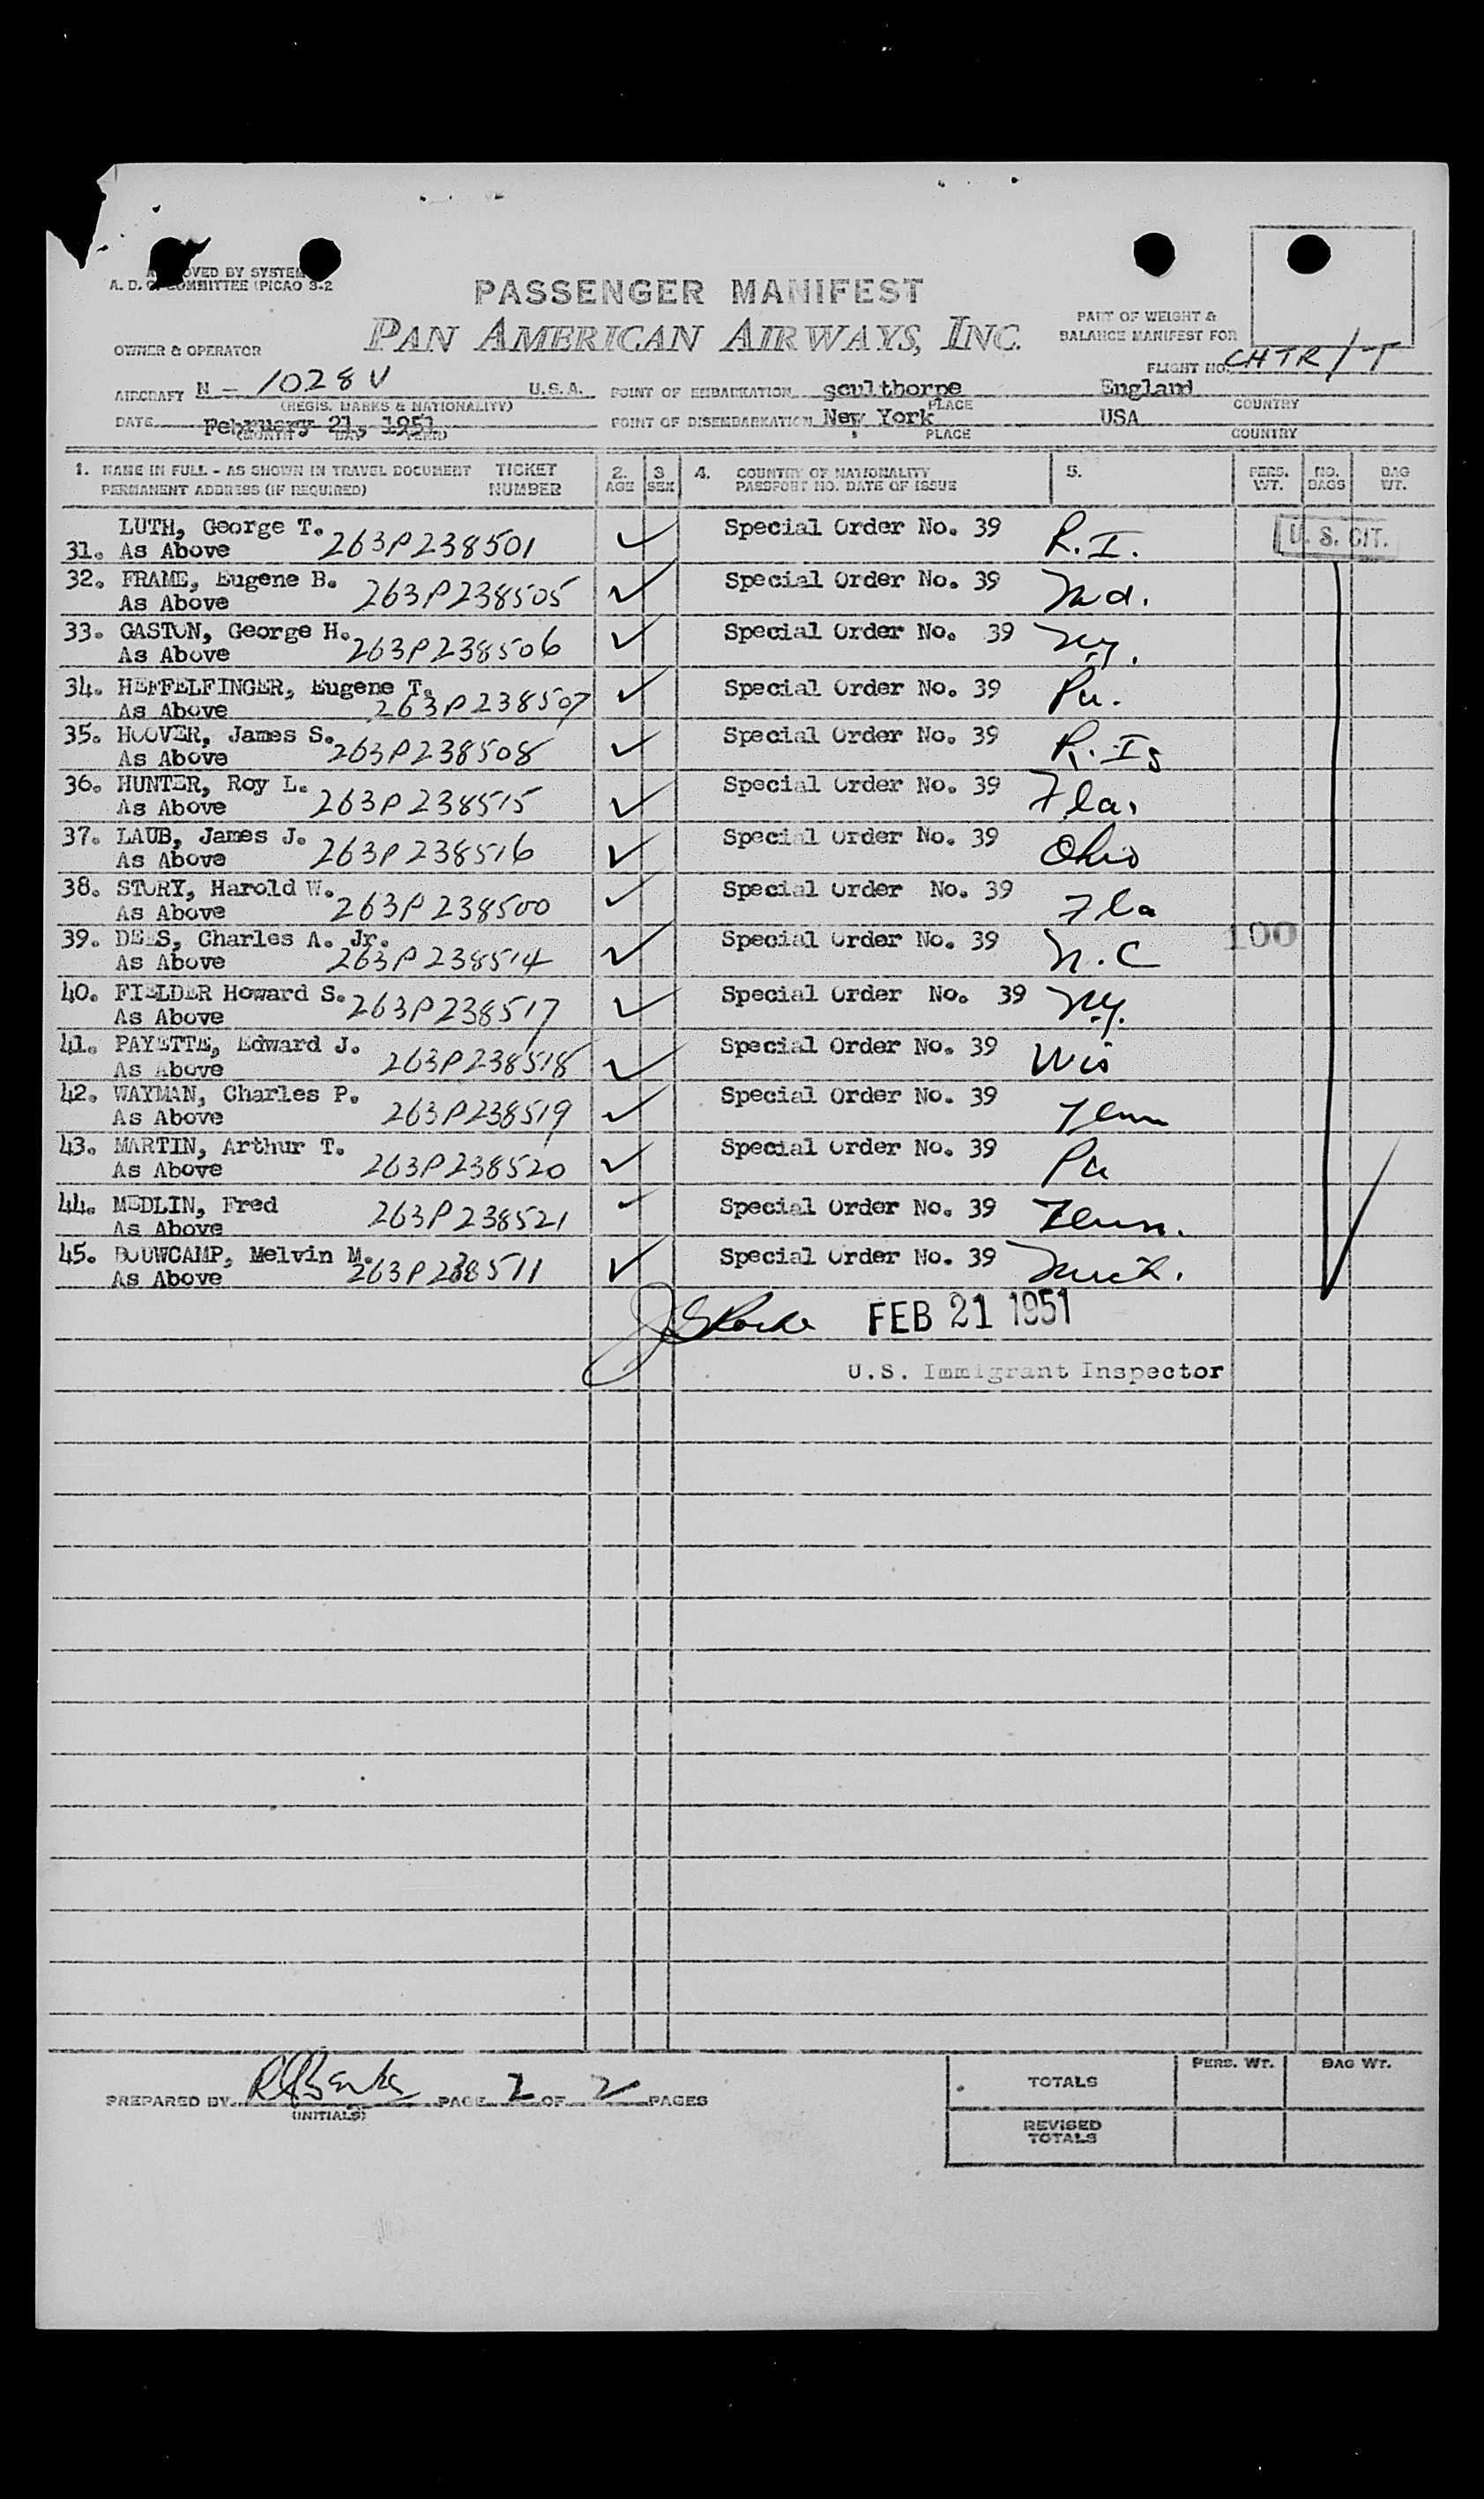 APPROVED BY SYSTEM
A. D. C. COMMITTEE (PICAO 3-2
PASSENGER MANIFEST
PAN AMERICAN AIRWAYS, INC.
PART OF WEIGHT &
BALANCE MANIFEST FOR
OWNER & OPERATOR
FLIGHT NO. CHTR/T
AIRCRAFT N - 1028V U.S.A. POINT OF EMBARKATION sculthorpe England
(REGIS. MARKS & NATIONALITY) PLACE COUNTRY
DATE February 21, 1951 POINT OF DISEMBARKATION New York USA
(MONTH DAY YEAR) PLACE COUNTRY
1. NAME IN FULL - AS SHOWN IN TRAVEL DOCUMENT TICKET 2. 3 4. COUNTRY OF NATIONALITY 5. PERS. NO. BAG
PERMANENT ADDRESS (IF REQUIRED) NUMBER AGE SEX PASSPORT NO. DATE OF ISSUE WT. BAGS WT.
LUTH, George T. Special Order No. 39 R.I. U. S. CIT.
31. As Above 263P238501
32. FRAME, Eugene B. Special Order No. 39 Md.
As Above 263P238505
33. GASTON, George H. Special Order No. 39 NY.
As Above 263P238506
34. HEFFELFINGER, Eugene T. Special Order No. 39 Pa.
As Above 263P238507
35. HOOVER, James S. Special Order No. 39 R. Is
As Above 263P238508
36. HUNTER, Roy L. Special Order No. 39 Fla.
As Above 263P238515
37. LAUB, James J. Special Order No. 39 Ohio
As Above 263P238516
38. STORY, Harold W. Special Order No. 39 Fla
As Above 263P238500
39. DEES, Charles A. Jr. Special Order No. 39 N.C 100
As Above 263P238514
40. FIELDER Howard S. 263P238517 Special Order No. 39 NY.
As Above
41. PAYETTE, Edward J. Special Order No. 39 Wis
As Above 263P238518
42. WAYMAN, Charles P. Special Order No. 39 Tenn
As Above 263P238519
43. MARTIN, Arthur T. Special Order No. 39 Pa
As Above 263P238520
44. MEDLIN, Fred 263P238521 Special Order No. 39 Tenn.
As Above
45. BOUWCAMP, Melvin M. Special Order No. 39 Mich.
As Above 263P238511
FEB 21 1951
U.S. Immigrant Inspector
PREPARED BY PAGE 2 OF 2 PAGES
(INITIALS)
PERS. WT. BAG WT.
TOTALS
REVISED
TOTALS